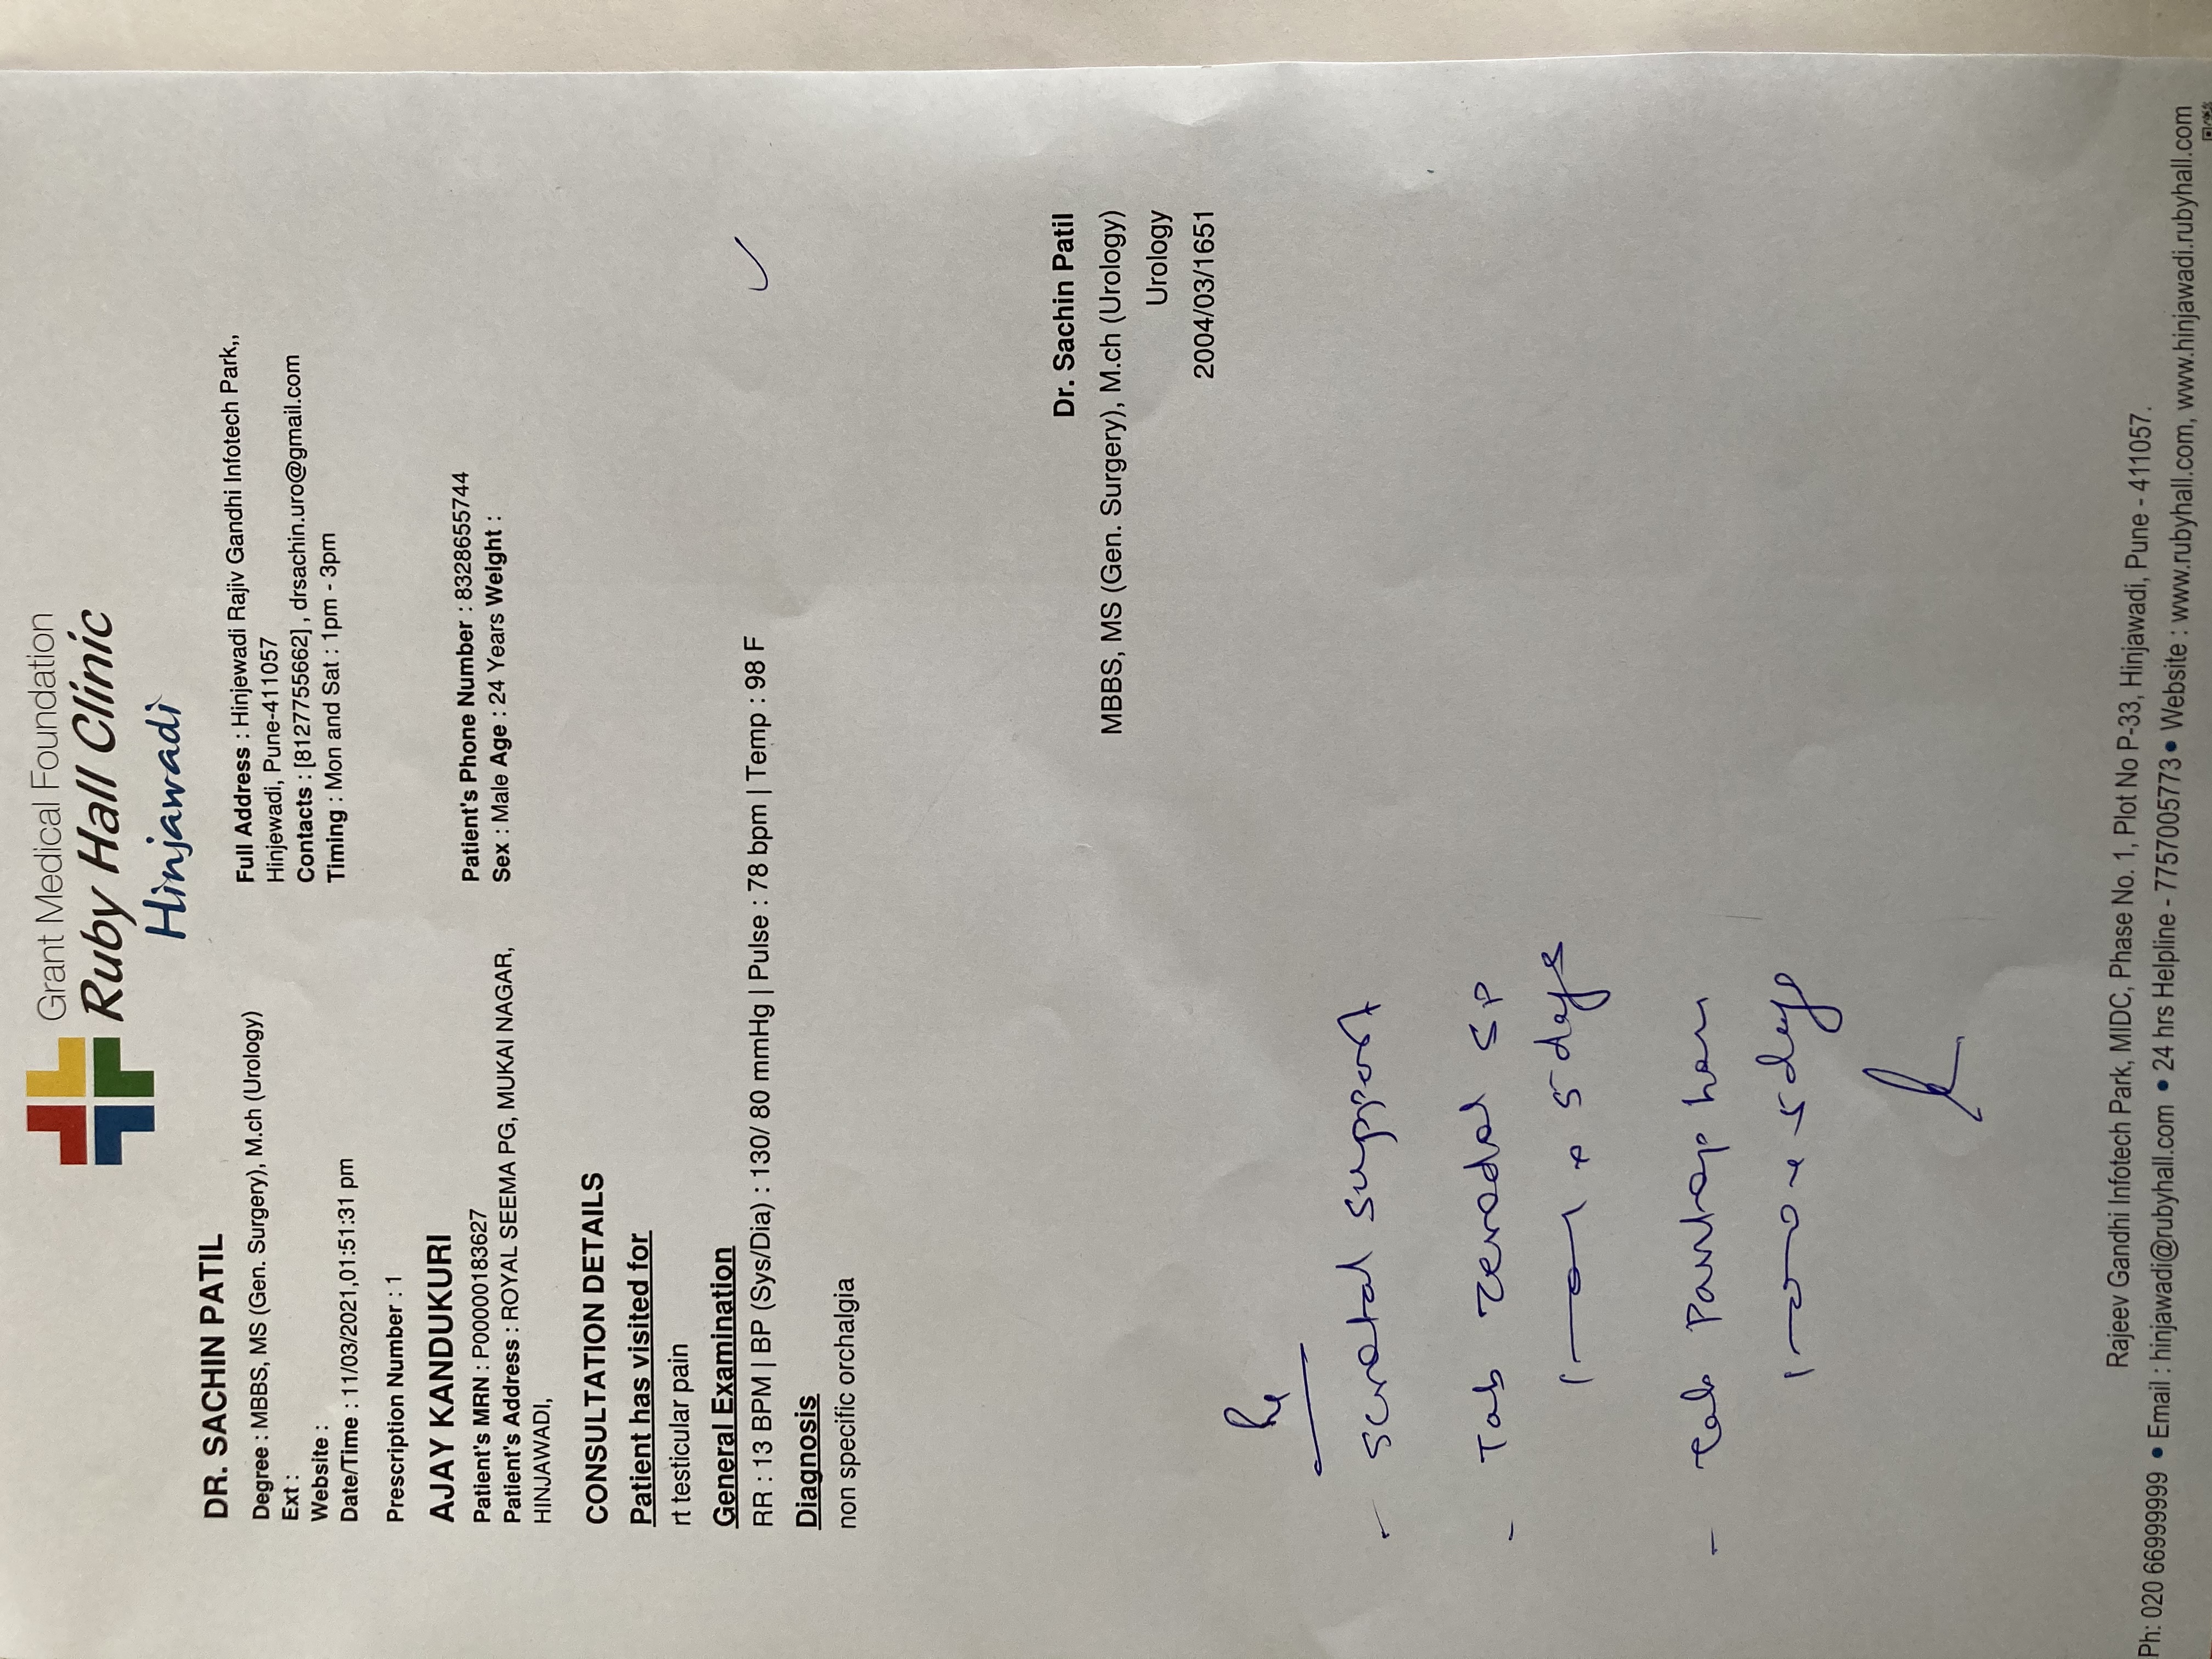 Grant Medical Foundation
Ruby Hall Clinic
Hinjawadi
DR. SACHIN PATIL
Degree : MBBS, MS (Gen. Surgery), M.ch (Urology)
Ext :
Website :
Date/Time : 11/03/2021,01:51:31 pm
Full Address : Hinjewadi Rajiv Gandhi Infotech Park,,
Hinjewadi, Pune-411057
Contacts : [8127755662] , drsachin.uro@gmail.com
Timing : Mon and Sat : 1pm - 3pm
Prescription Number : 1
AJAY KANDUKURI
Patient's MRN : P00000183627
Patient's Address : ROYAL SEEMA PG, MUKAI NAGAR,
HINJAWADI,
Patient's Phone Number : 8328655744
Sex : Male Age : 24 Years Weight :
CONSULTATION DETAILS
Patient has visited for
rt testicular pain
General Examination
RR : 13 BPM | BP (Sys/Dia) : 130/ 80 mmHg | Pulse : 78 bpm | Temp : 98 F
Diagnosis
non specific orchalgia
Dr. Sachin Patil
MBBS, MS (Gen. Surgery), M.ch (Urology)
Urology
2004/03/1651
Rx
- scrotal support
- Tab zerodol SP
1—0—1 x 5 days
- Tab Pantop
1—0—0 x 5 days
Rajeev Gandhi Infotech Park, MIDC, Phase No. 1, Plot No P-33, Hinjawadi, Pune - 411057.
Ph: 020 66999999 • Email : hinjawadi@rubyhall.com • 24 hrs Helpline - 7757005773 • Website : www.rubyhall.com, www.hinjawadi.rubyhall.com